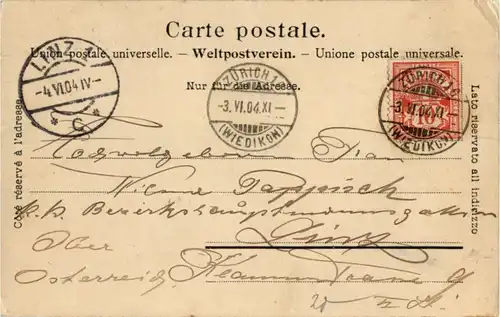 Carte postale.
Union postale universelle. — Weltpostverein. — Unione postale universale.
Nur für die Adresse.
Côté réservé à l'adresse.
Lato riservato all indirizzo
LINZ 1
-4.VI.04 IV-
ZÜRICH 14
-3.VI.04.XI-
(WIEDIKON)
ZÜRICH 14
-3.VI.04.XI-
(WIEDIKON)
Hochwolgeboren Frau
k. k. Bezirkshauptmannsgattin
Linz
Ober
Österreich